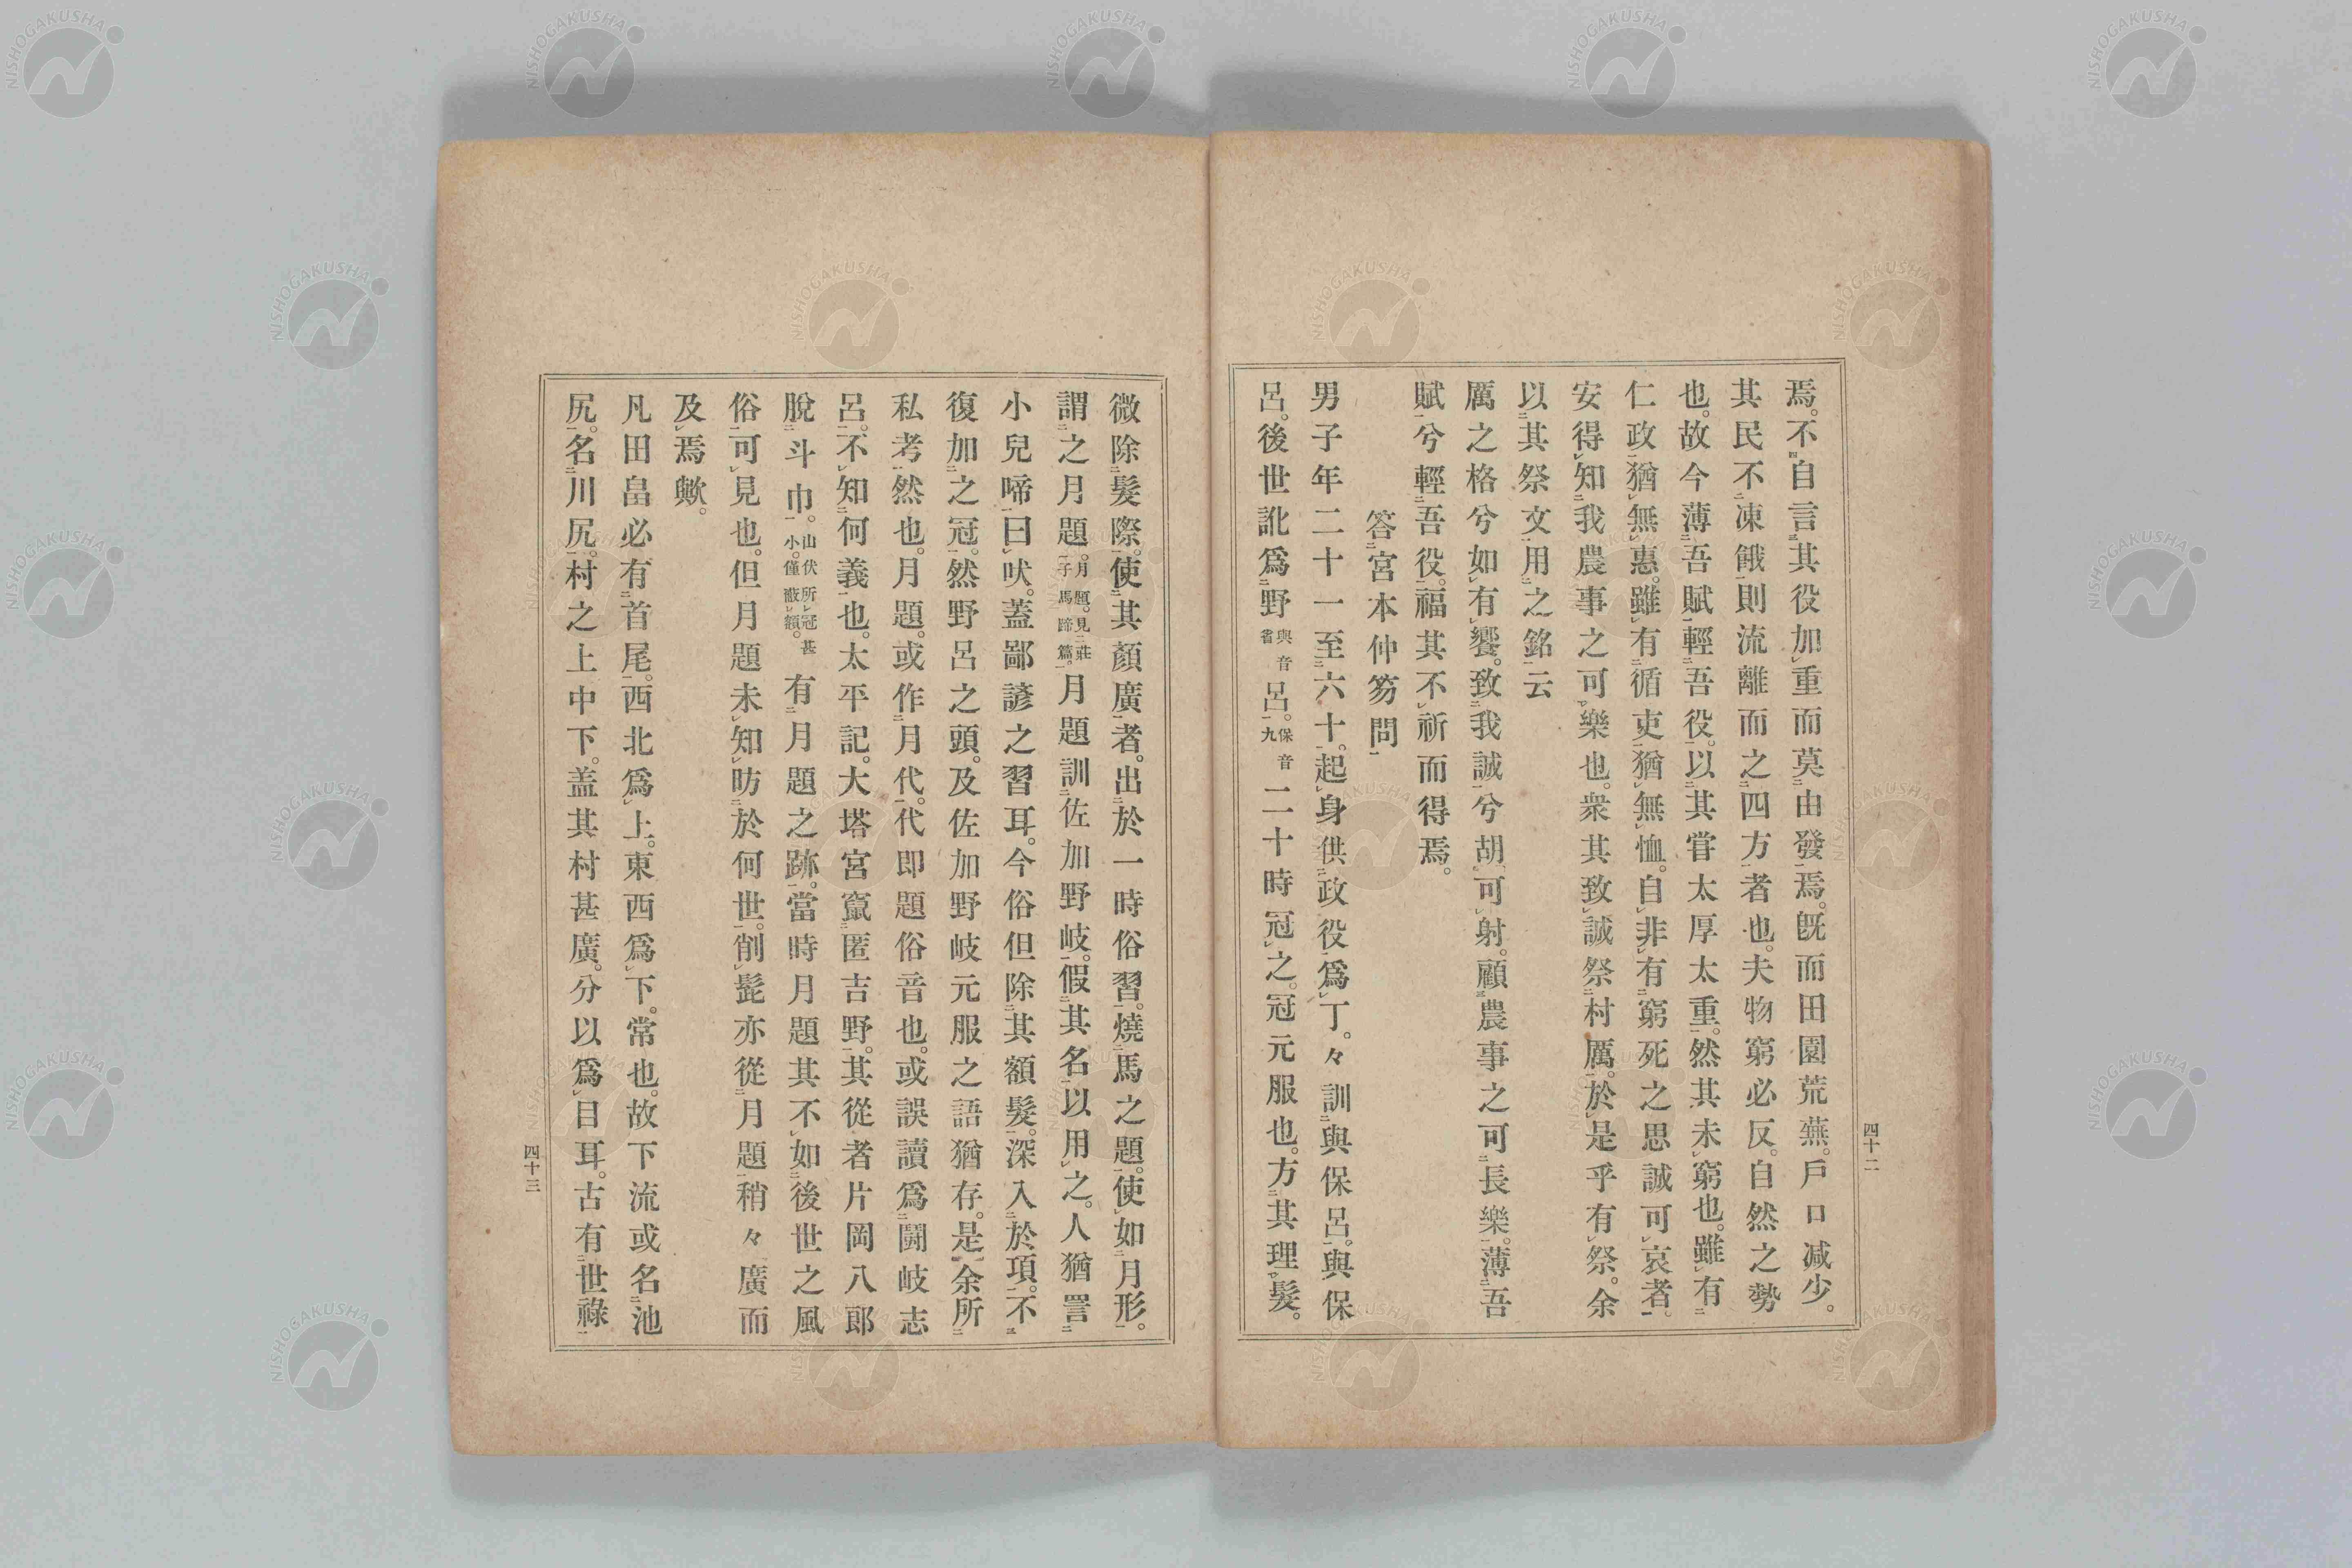 焉。不自言其役加重而莫由發焉。既而田園荒蕪。戶口減少。
其民不凍餓則流離而之四方者也。夫物窮必反。自然之勢
也。故今薄吾賦輕吾役。以其甞太厚太重。然其未窮也。雖有
仁政猶無惠。雖有循吏猶無恤。自非有窮死之思誠可哀者。
安得知我農事之可樂也。衆其致誠祭村厲。於是乎有祭。余
以其祭文用之銘云
厲之格兮如有饗。致我誠兮胡可射。顧農事之可長樂。薄吾
賦兮輕吾役。福其不祈而得焉。
答宮本仲笏問
男子年二十一至六十。起身供政役爲丁。々訓與保呂。與保
呂。後世訛爲野與音省呂。保音九二十時冠之。冠元服也。方其理髮。
四十二
微除髮際。使其顏廣者。出於一時俗習。燒馬之題。使如月形。
謂之月題。月題。見莊子馬蹄篇。月題訓佐加野岐。假其名以用之。人猶詈
小兒啼曰吠。蓋鄙諺之習耳。今俗但除其額髮。深入於項。不
復加之冠。然野呂之頭。及佐加野岐元服之語猶存。是余所
私考然也。月題。或作月代。代即題俗音也。或誤讀爲鬪岐志
呂。不知何義也。太平記。大塔宮竄匿吉野。其從者片岡八郎
脫斗巾。山伏所冠甚小。僅蔽額。有月題之跡。當時月題其不如後世之風
俗可見也。但月題未知昉於何世。削髭亦從月題稍々廣而
及焉歟。
凡田畠必有首尾。西北爲上。東西爲下。常也。故下流或名池
尻。名川尻。村之上中下。盖其村甚廣。分以爲目耳。古有世祿
四十三
NISHOGAKUSHA